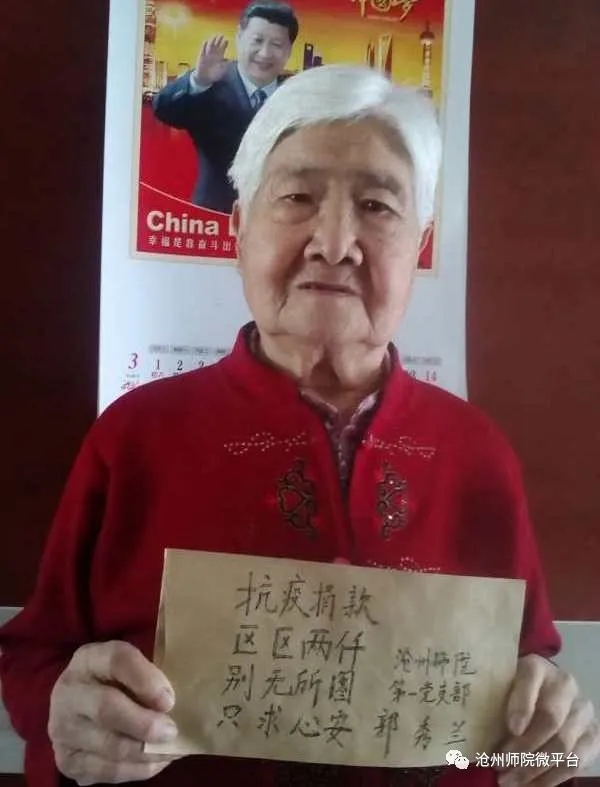 中国梦
China
幸福是靠奋斗出
3
1 2
14
抗疫捐款
区区两仟
别无所图
只求心安 郭秀兰
沧州师院
第一党支部
沧州师院微平台